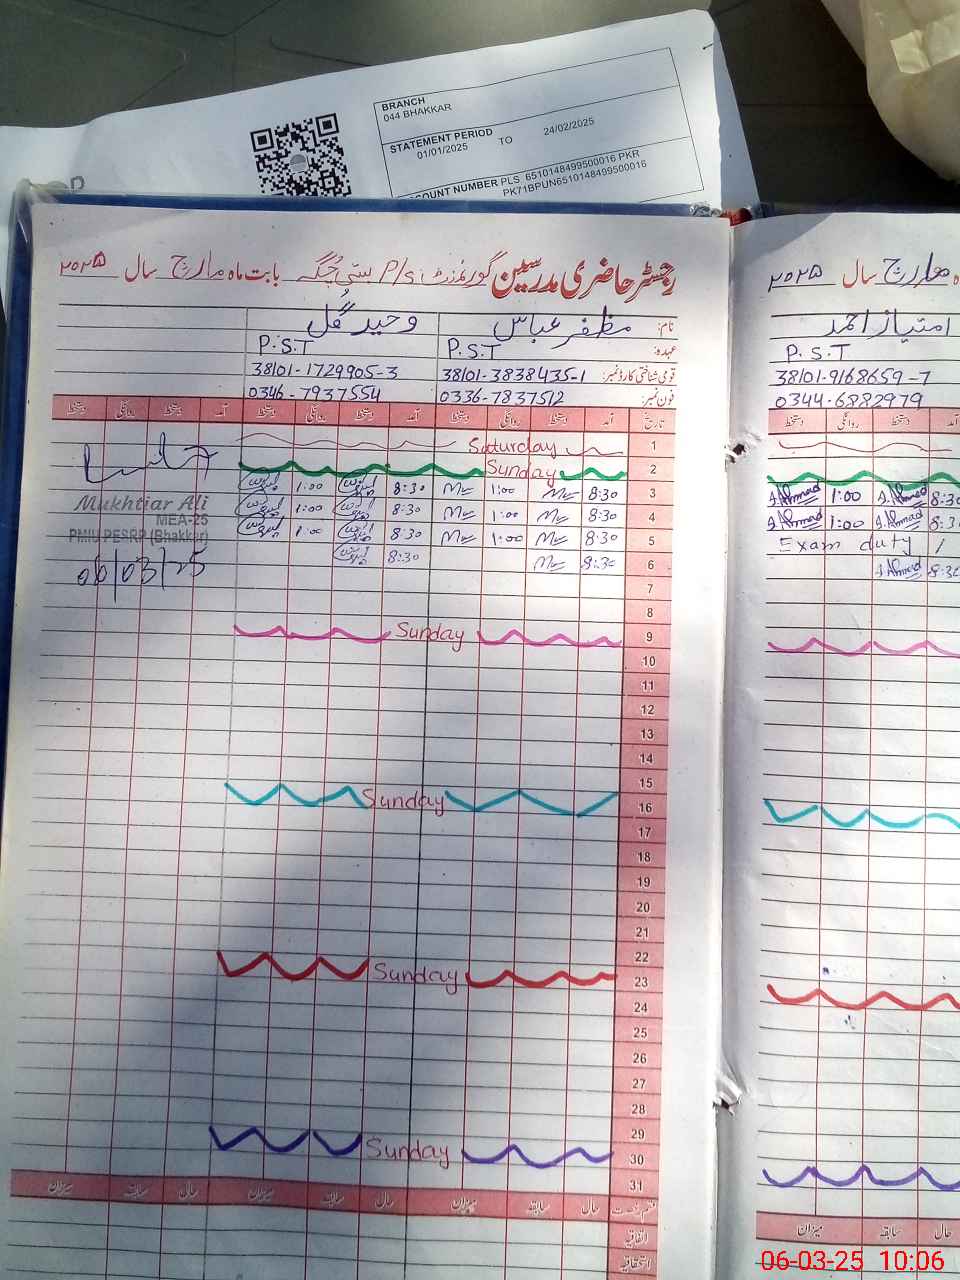 BRANCH
044 BHAKKAR
STATEMENT PERIOD
01/01/2025 TO 24/02/2025
COUNT NUMBER PLS 6510148499500016 PKR
PK71BPUN6510148499500016
رجسٹر حاضری مدرسین گورنمنٹ P/S بستی جُگہ بابت ماہ مارچ سال ۲۰۲۵
نام: مظفر عباس وحید گُل
عہدہ: P.S.T P.S.T
قومی شناختی کارڈ نمبر: 38101-3838435-1 38101-1729905-3
فون نمبر: 0336-7837512 0346-7937554
تاریخ آمد دستخط روانگی دستخط آمد دستخط روانگی دستخط آمد دستخط روانگی دستخط
1 Saturday
2 Sunday
3 8:30 1:00 8:30 1:00
4 8:30 1:00 8:30 1:00
5 8:30 1:00 8:30 1:00
6 8:30 8:30
7
8
9 Sunday
10
11
12
13
14
15
16 Sunday
17
18
19
20
21
22
23 Sunday
24
25
26
27
28
29
30 Sunday
31
Mukhtiar Ali
MEA-25
PMIU PESRP (Bhakkar)
06/03/25
قسم رخصت حال سابقہ میزان حال سابقہ میزان حال سابقہ میزان
اتفاقیہ
استحقاقیہ
مارچ سال ۲۰۲۵
امتیاز احمد
P.S.T
38101-9168659-7
0344-6882979
دستخط روانگی دستخط
8:30 I.Ahmad 1:00 I.Ahmad
8:30 I.Ahmad 1:00 I.Ahmad
Exam duty /
8:30 I.Ahmad
حال سابقہ میزان
06-03-25 10:06